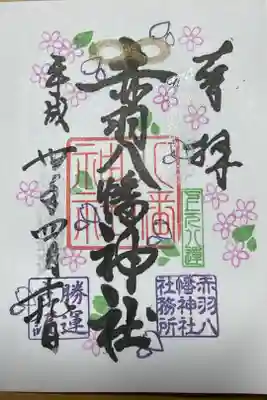 奉拝
赤羽八幡神社
平成丗年四月
八幡
神社
赤羽八
幡神社
社務所
勝運